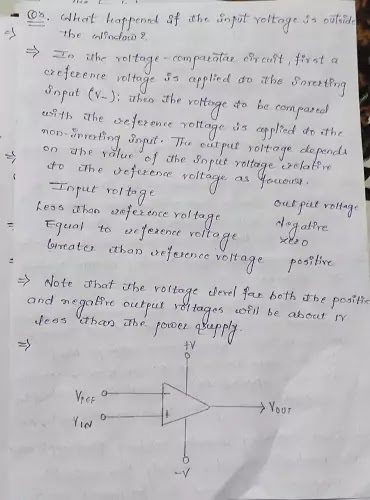 Q8. What happened if the input voltage is outside
the window?
⇒ In the voltage-comparator circuit, first a
reference voltage is applied to the inverting
input (V-); then the voltage to be compared
with the reference voltage is applied to the
non-inverting input. The output voltage depends
on the value of the input voltage relative
to the reference voltage as follows.
Input voltage output voltage
Less than reference voltage Negative
Equal to reference voltage zero
Greater than reference voltage positive
⇒ Note that the voltage level for both the positive
and negative output voltages will be about 1V
less than the power supply.
⇒
+V
VREF
-
VOUT
VIN
+
-V